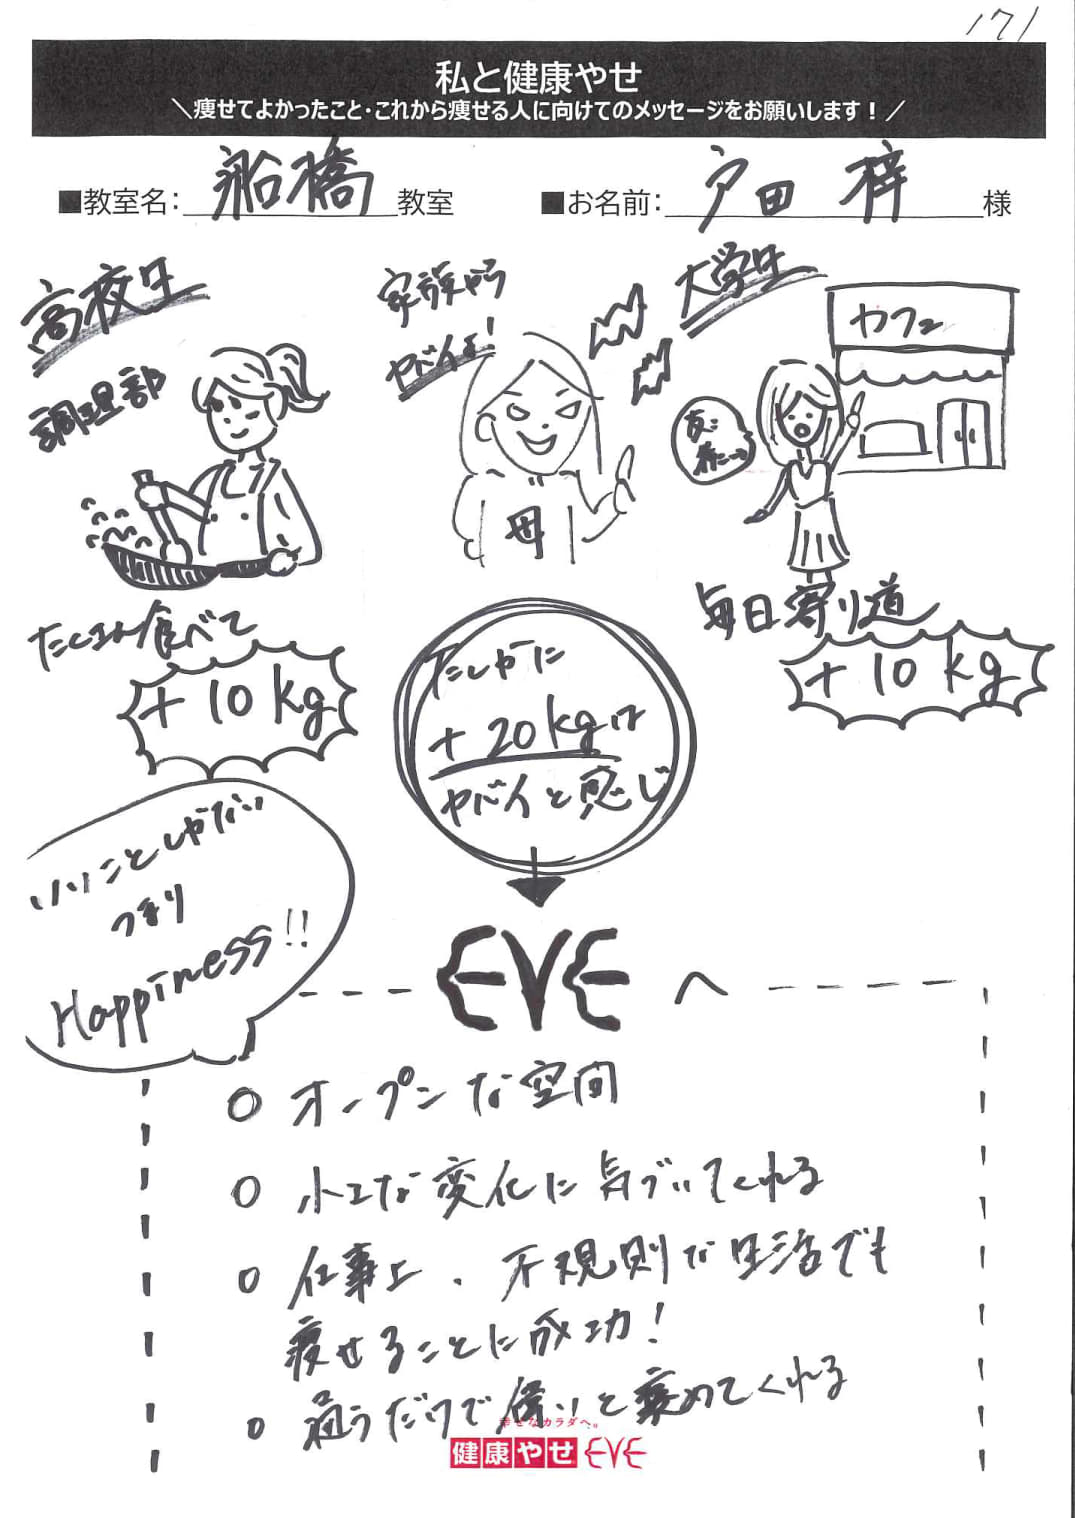 171
私と健康やせ
＼痩せてよかったこと・これから痩せる人に向けてのメッセージをお願いします！／
■教室名：船橋教室 ■お名前：戸田 梓様
高校生
調理部
たくさん食べて
+10kg
家族から
ヤバイよ！
母
大学生
カフェ
毎日寄り道
+10kg
たしかに
+20kgは
ヤバイと感じ
いいことしかない
つまり
Happiness!!
EVE へ
○ オープンな空間
○ 小さな変化に気づいてくれる
○ 仕事上、不規則な生活でも
痩せることに成功！
○ 通うだけで偉いと褒めてくれる
幸せなカラダへ。
健康やせ EVE